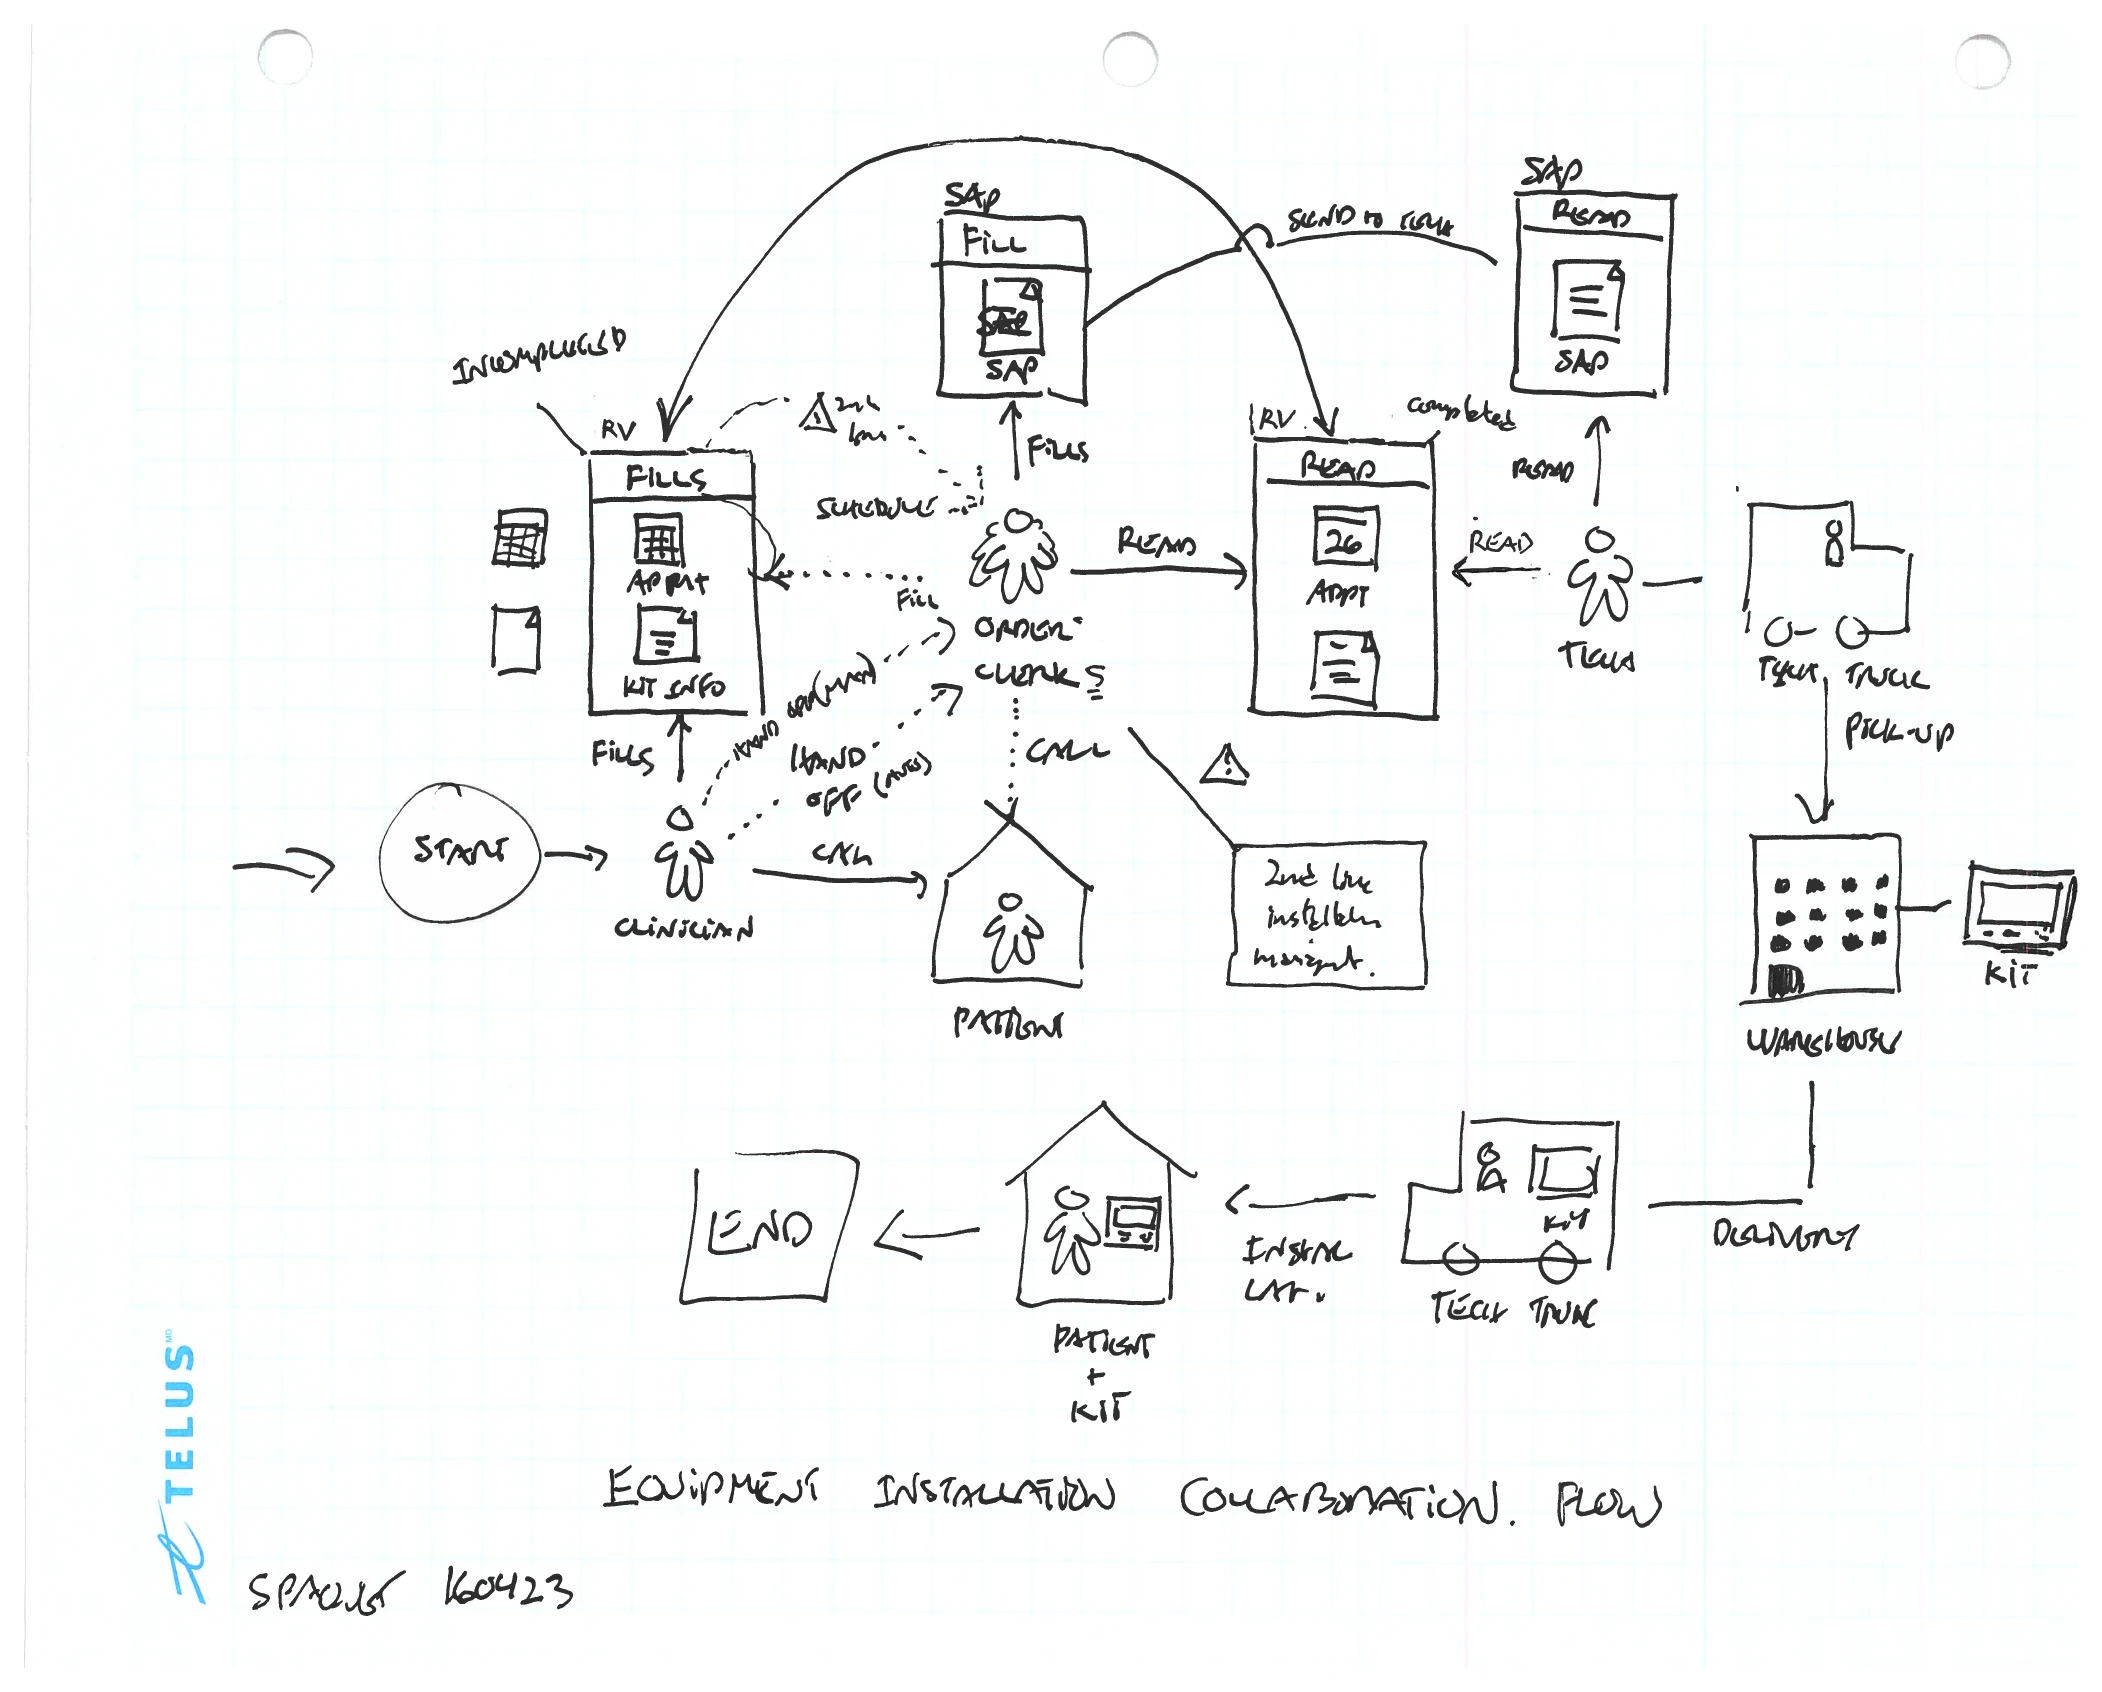 SAP
FILL
SAP
SAP
SEND to TECH
SAP
READ
SAP
INCOMPLETED
RV
FILLS
APPMT
KIT INFO
FILLS
2nd
SCHEDULE
FILLS
FILL
ORDER
CLERKS
READ
RV
completed
READ
26
APPT
READ
READ
TECH
TECH TRUCK
PICK-UP
HAND OFF (MAN)
HAND
OFF (AUTO)
CALL
START
CLINICIAN
CALL
PATIENT
2nd line
WAREHOUSE
KIT
DELIVERY
KIT
TECH TRUK
INSTAL
LAT.
PATIENT
+
KIT
END
EQUIPMENT INSTALLATION COLLABORATION. FLOW
160423
TELUS
MD